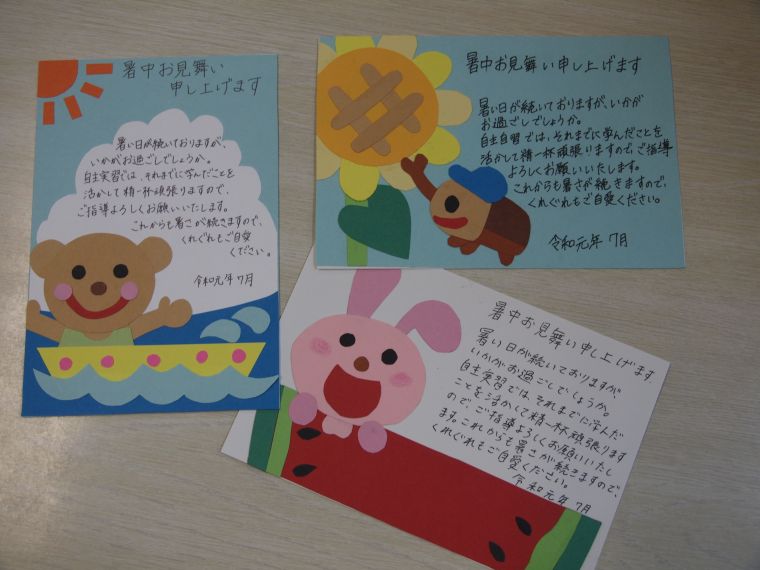 暑中お見舞い
申し上げます
暑い日が続いておりますが、
いかがお過ごしでしょうか。
自主実習では、それまでに学んだことを
活かして精一杯頑張りますので、
ご指導よろしくお願いいたします。
これからも暑さが続きますので、
くれぐれもご自愛
ください。
令和元年 7月
暑中お見舞い申し上げます
暑い日が続いておりますが、いかが
お過ごしでしょうか。
自主自習では、それまでに学んだことを
活かして精一杯頑張りますので、ご指導
よろしくお願いいたします。
これからも暑さが続きますので、
くれぐれもご自愛ください。
令和元年 7月
暑中お見舞い申し上げます.
暑い日が続いておりますが、
いかがお過ごしでしょうか。
自主実習では、それまでに学んだ
ことを活かして精一杯頑張ります
ので、ご指導よろしくお願いいたし
ます。これからも暑さが続きますので、
くれぐれもご自愛ください。
令和元年 7月